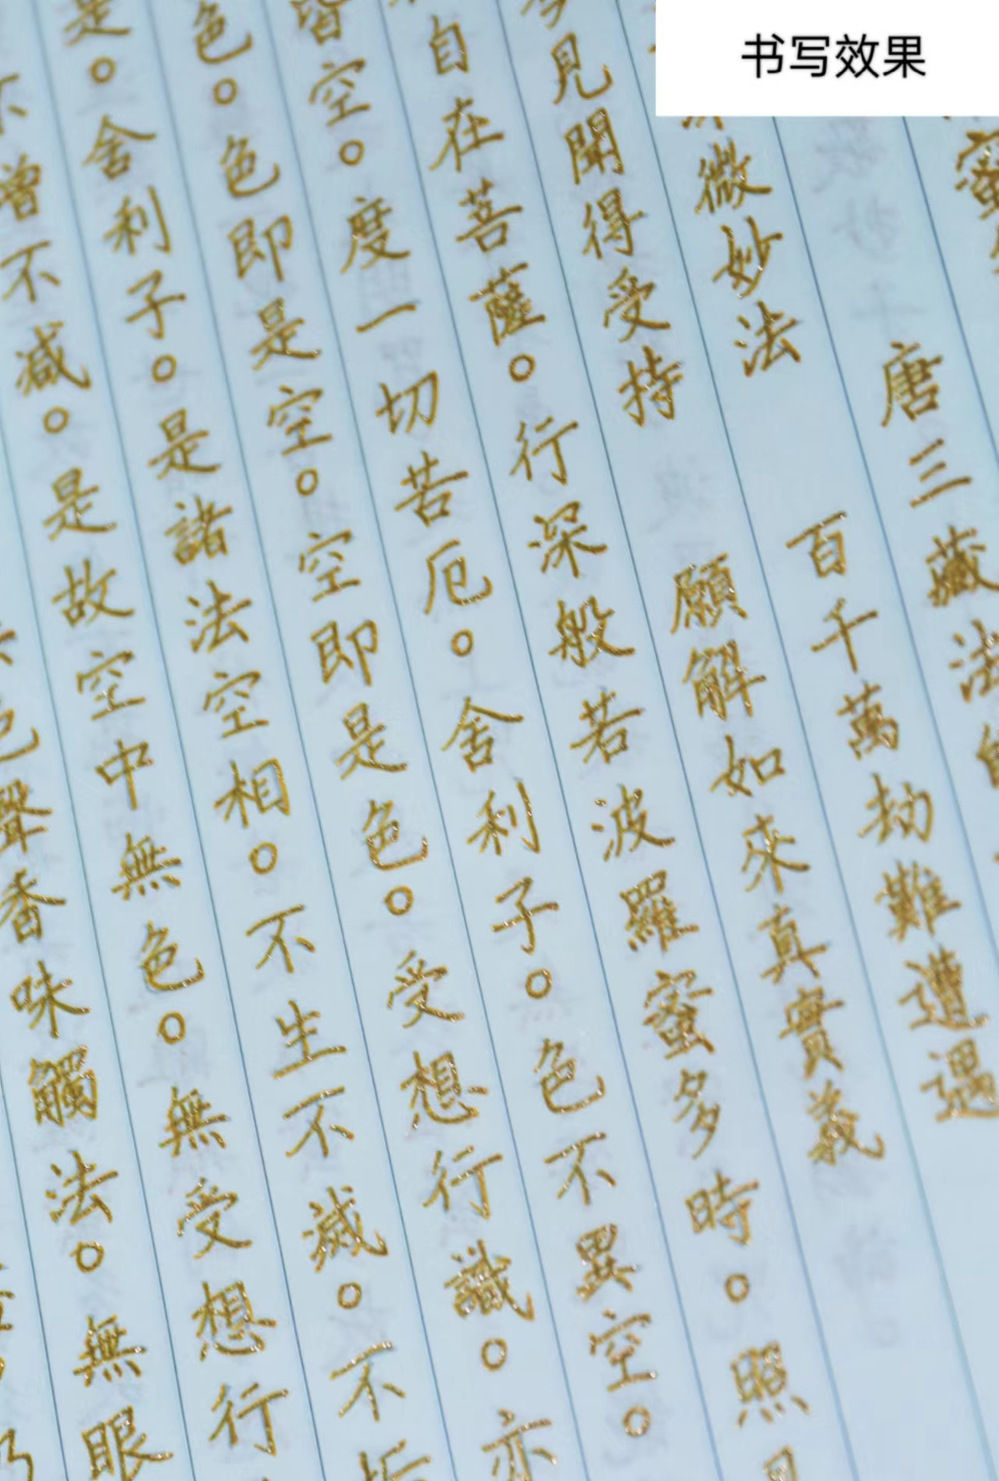 蜜
唐三藏法
微妙法 百千萬劫難遭遇
見聞得受持 願解如來真實義
自在菩薩。行深般若波羅蜜多時。照見
皆空。度一切苦厄。舍利子。色不異空。
色。色即是空。空即是色。受想行識。亦
是。舍利子。是諸法空相。不生不滅。不垢
不增不減。是故空中無色。無受想行
色聲香味觸法。無眼
书写效果